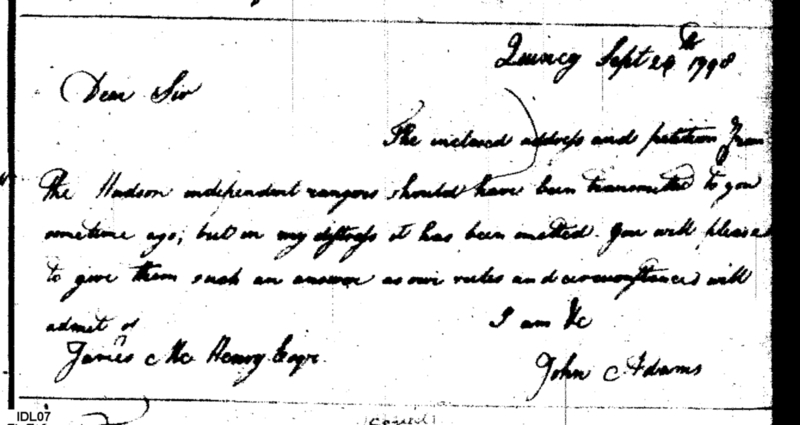 Quincy Sept 29th 1798
Dear Sir
The inclosed address and petition from
the Hudson independent rangers should have been transmitted to you
sometime ago; but in my distress it has been omitted. You will please
to give them such an answer as our rules and circumstances will
admit of
I am &c
James McHenry Esqr.
John Adams
IDL07